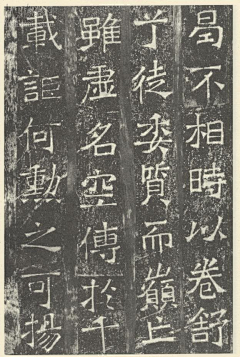 曷不相時以卷舒
兮徒委質而巔亡
雖虛名空傳於千
載詎何勳之可揚